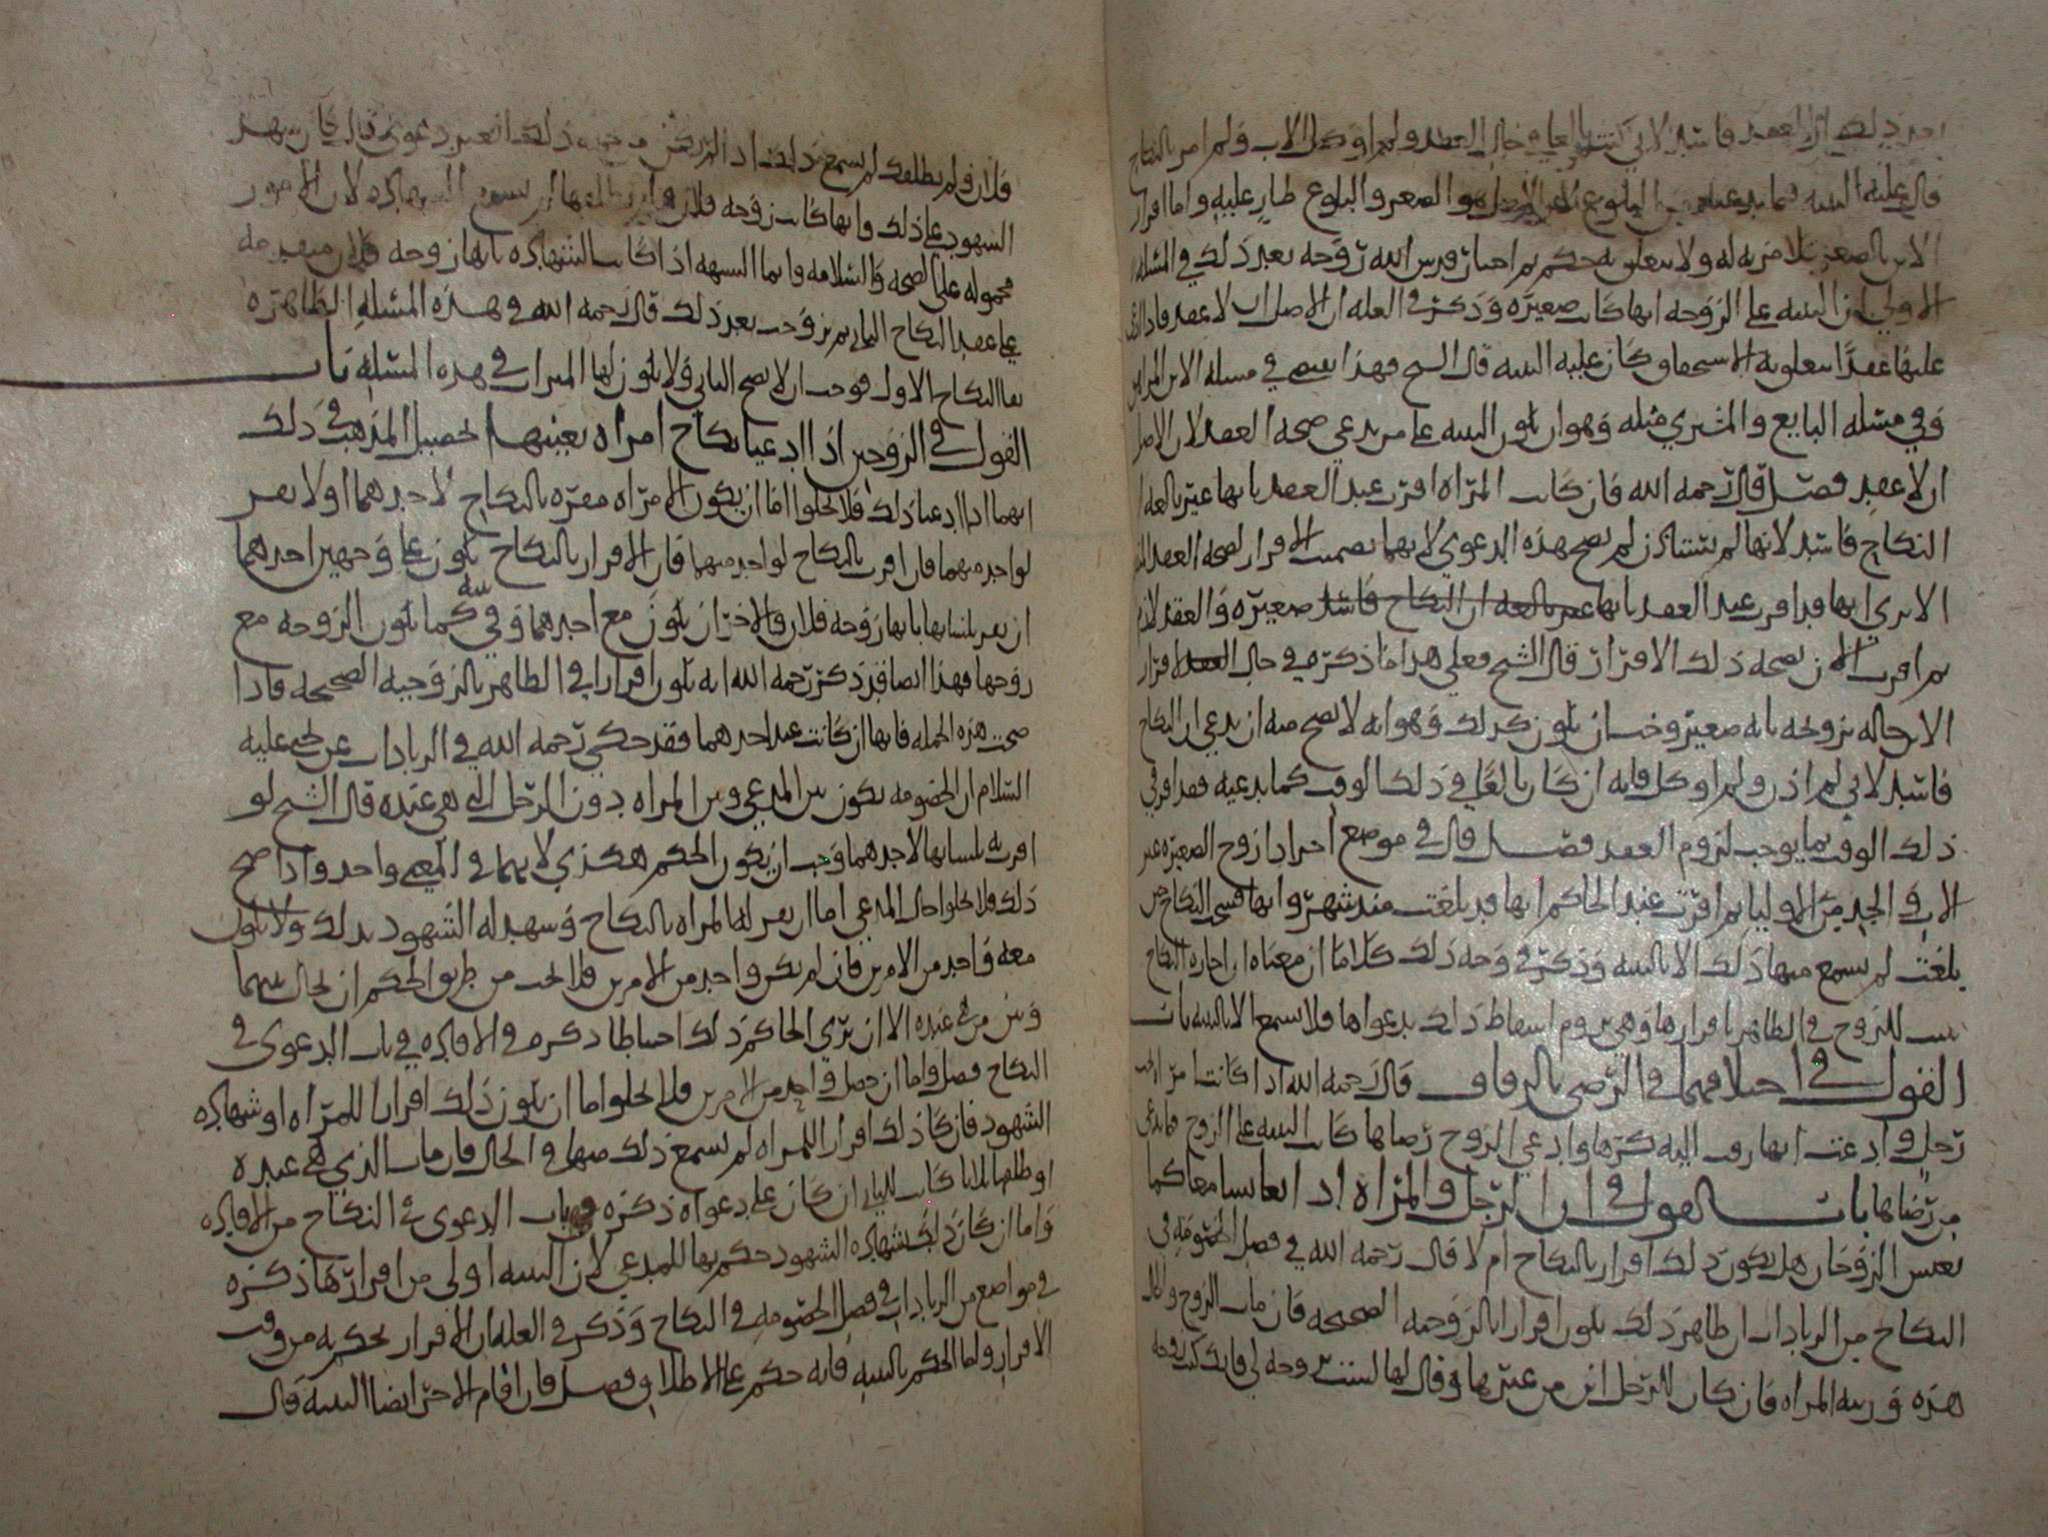 ذلك ان العقد فاسد لاني كنت بالغا في حال العقد ولم اوكل الاب ولم امر بالنكاح
قال عليه البينه فيما يدعيه من البلوغ لان الاصل هو الصغر والبلوغ طار عليه واما اقرار
الابن بالصغر فلا مزيه له ولا يتعلق به حكم ثم احسان قدس الله روحه بعد ذلك في المسله
الاولى ان البينه على الزوجه انها كانت صغيره وذكر في العله ان الاصل ان لا عقد فاذا
عليها عقدا يتعلق به الاستحقاق كان عليه البينه قال الشيخ فهذا في مسله الابن
وفي مسله البايع والمشتري مثله وهو ان تكون البينه على من يدعي صحه العقد لان الاصل
ان لا عقد فصل قال رحمه الله فان كانت المراه اقرت عند العقد بانها غير بالغه
النكاح فاسد لانها لم تستاذن لم يصح هذه الدعوى لانهما بضمت الاقرار لصحه العقد
الا ترى انها قد اقرت عند العقد بانها غير بالغه ان النكاح فاسد صغيره والعقد لازم
ثم اقرت الان بصحه ذلك الاقرار قال الشيخ فعلى هذا ما ذكره في حال العقد اقرار
الابن حاله تزويجه بانه صغير وجب ان يكون كذلك وهو انه لا يصح منه ان يدعي ان النكاح
فاسد لاني لم اذن ولم اوكل فانه ان كان بالغا في ذلك الوقت كما يدعيه فقد اقر في
ذلك الوقت بما يوجب لزوم العقد فصل قال في موضع اخر اذا زوج الصغيره غير
الاب والجد من الاوليا ثم اقرت عند الحاكم انها قد بلغت منذ شهر وانها فسخت النكاح حين
بلغت لم يسمع منها ذلك الا بالبينه وذكر في وجه ذلك كلاما ان معناه ان اجازه النكاح
ثبت للزوج في الظاهر باقرارها وهي تروم اسقاط ذلك بدعواها فلا يسمع الا بالبينه باب
القول في اختلافهما في الرضى بالزفاف قال رحمه الله اذا كانت امراه تحت
رجل وادعت انها زفت اليه كرها وادعى الزوج رضاها كانت البينه على الزوج فيما يدعي
من رضاها باب القول في ان الرجل والمراه اذا تعايشا معا كما
يعيش الزوجان هل يكون ذلك اقرار بالنكاح ام لا قال رحمه الله في فصل الخصومه في
النكاح من الزيادات ان ظاهر ذلك يكون اقرارا بالزوجيه الصحيحه فان مات الزوج
هذه ورثته المراه فان كان للرجل ابن من غيرها وقال لها لست زوجه لي فانك كنت زوجه
فلان ولم يطلقك لم يسمع ذلك اذا لم يكن من جهه ذلك الغير دعوى قال فان شهد
الشهود على ذلك وانها كانت زوجه فلان ولم يطلقها لم تسمع الشهاده لان الامور
محموله على الصحه والسلامه وانما الشبهه اذا كانت الشهاده بانها زوجه فلان متقدمه
على عقد النكاح الثاني ثم تزوجت بعد ذلك قال رحمه الله في هذه المسله الظاهره
بقا النكاح الاول فوجب ان لا يصح الثاني ولا يكون لها الميراث في هذه المسله باب
القول في الزوجين اذا ادعيا نكاح امراه بعينها تحصيل المذهب في ذلك
انهما اذا ادعيا ذلك فلا يخلوا اما ان يكون الامراه مقره بالنكاح لاحدهما او لا تقر
لواحد منهما فان اقرت بالنكاح لواحد منهما فان الاقرار بالنكاح يكون على وجهين احدهما
ان تقر بلسانها بانها زوجه فلان والاخر ان يكون مع احدهما وفي بيته كما تكون الزوجه مع
زوجها فهذا ايضا قد ذكر رحمه الله انه يكون اقرارا في الظاهر بالزوجيه الصحيحه فاذا
صحت هذه الجمله فانها ان كانت عند احدهما فقد حكى رحمه الله في الزيادات عن يحيى عليه
السلام ان الخصومه تكون بين المدعي وبين المراه دون الرجل الذي هي عنده قال الشيخ لو
اقرت بلسانها لاحدهما وجب ان يكون الحكم هكذي لانهما في المعنى واحد واذا صح
ذلك فلا يخلوا حال المدعي اما ان تقر له المراه بالنكاح وشهد له الشهود بذلك ولا يكون
معه واحد من الامرين فان لم يكن واحد من الامرين فلا يجب من طريق الحكم ان يحال بينها
وبين من هي عنده الا ان يرى الحاكم ذلك احتياطا ذكره في الافاده في باب الدعوى في
النكاح فصل واما ان حصل واحد من الامرين فلا يخلوا اما ان يكون ذلك اقرارا للمراه او شهاده
الشهود فان كان ذلك اقرار المراه لم يسمع ذلك منها في الحال فان مات الذي هي عنده
او طلقها كانت للثاني ان كان على دعواه ذكره في باب الدعوى في النكاح من الافاده
واما ان كان ذلك شهاده الشهود حكم بها للمدعي لان البينه اولى من اقرارها ذكره
في مواضع من الزيادات في فصل الخصومه في النكاح وذكر في العله ان الاقرار يحكم به من وقت
الاقرار واما الحكم بالبينه فانه حكم على الاطلاق فصل فان اقام الاخر ايضا البينه قال